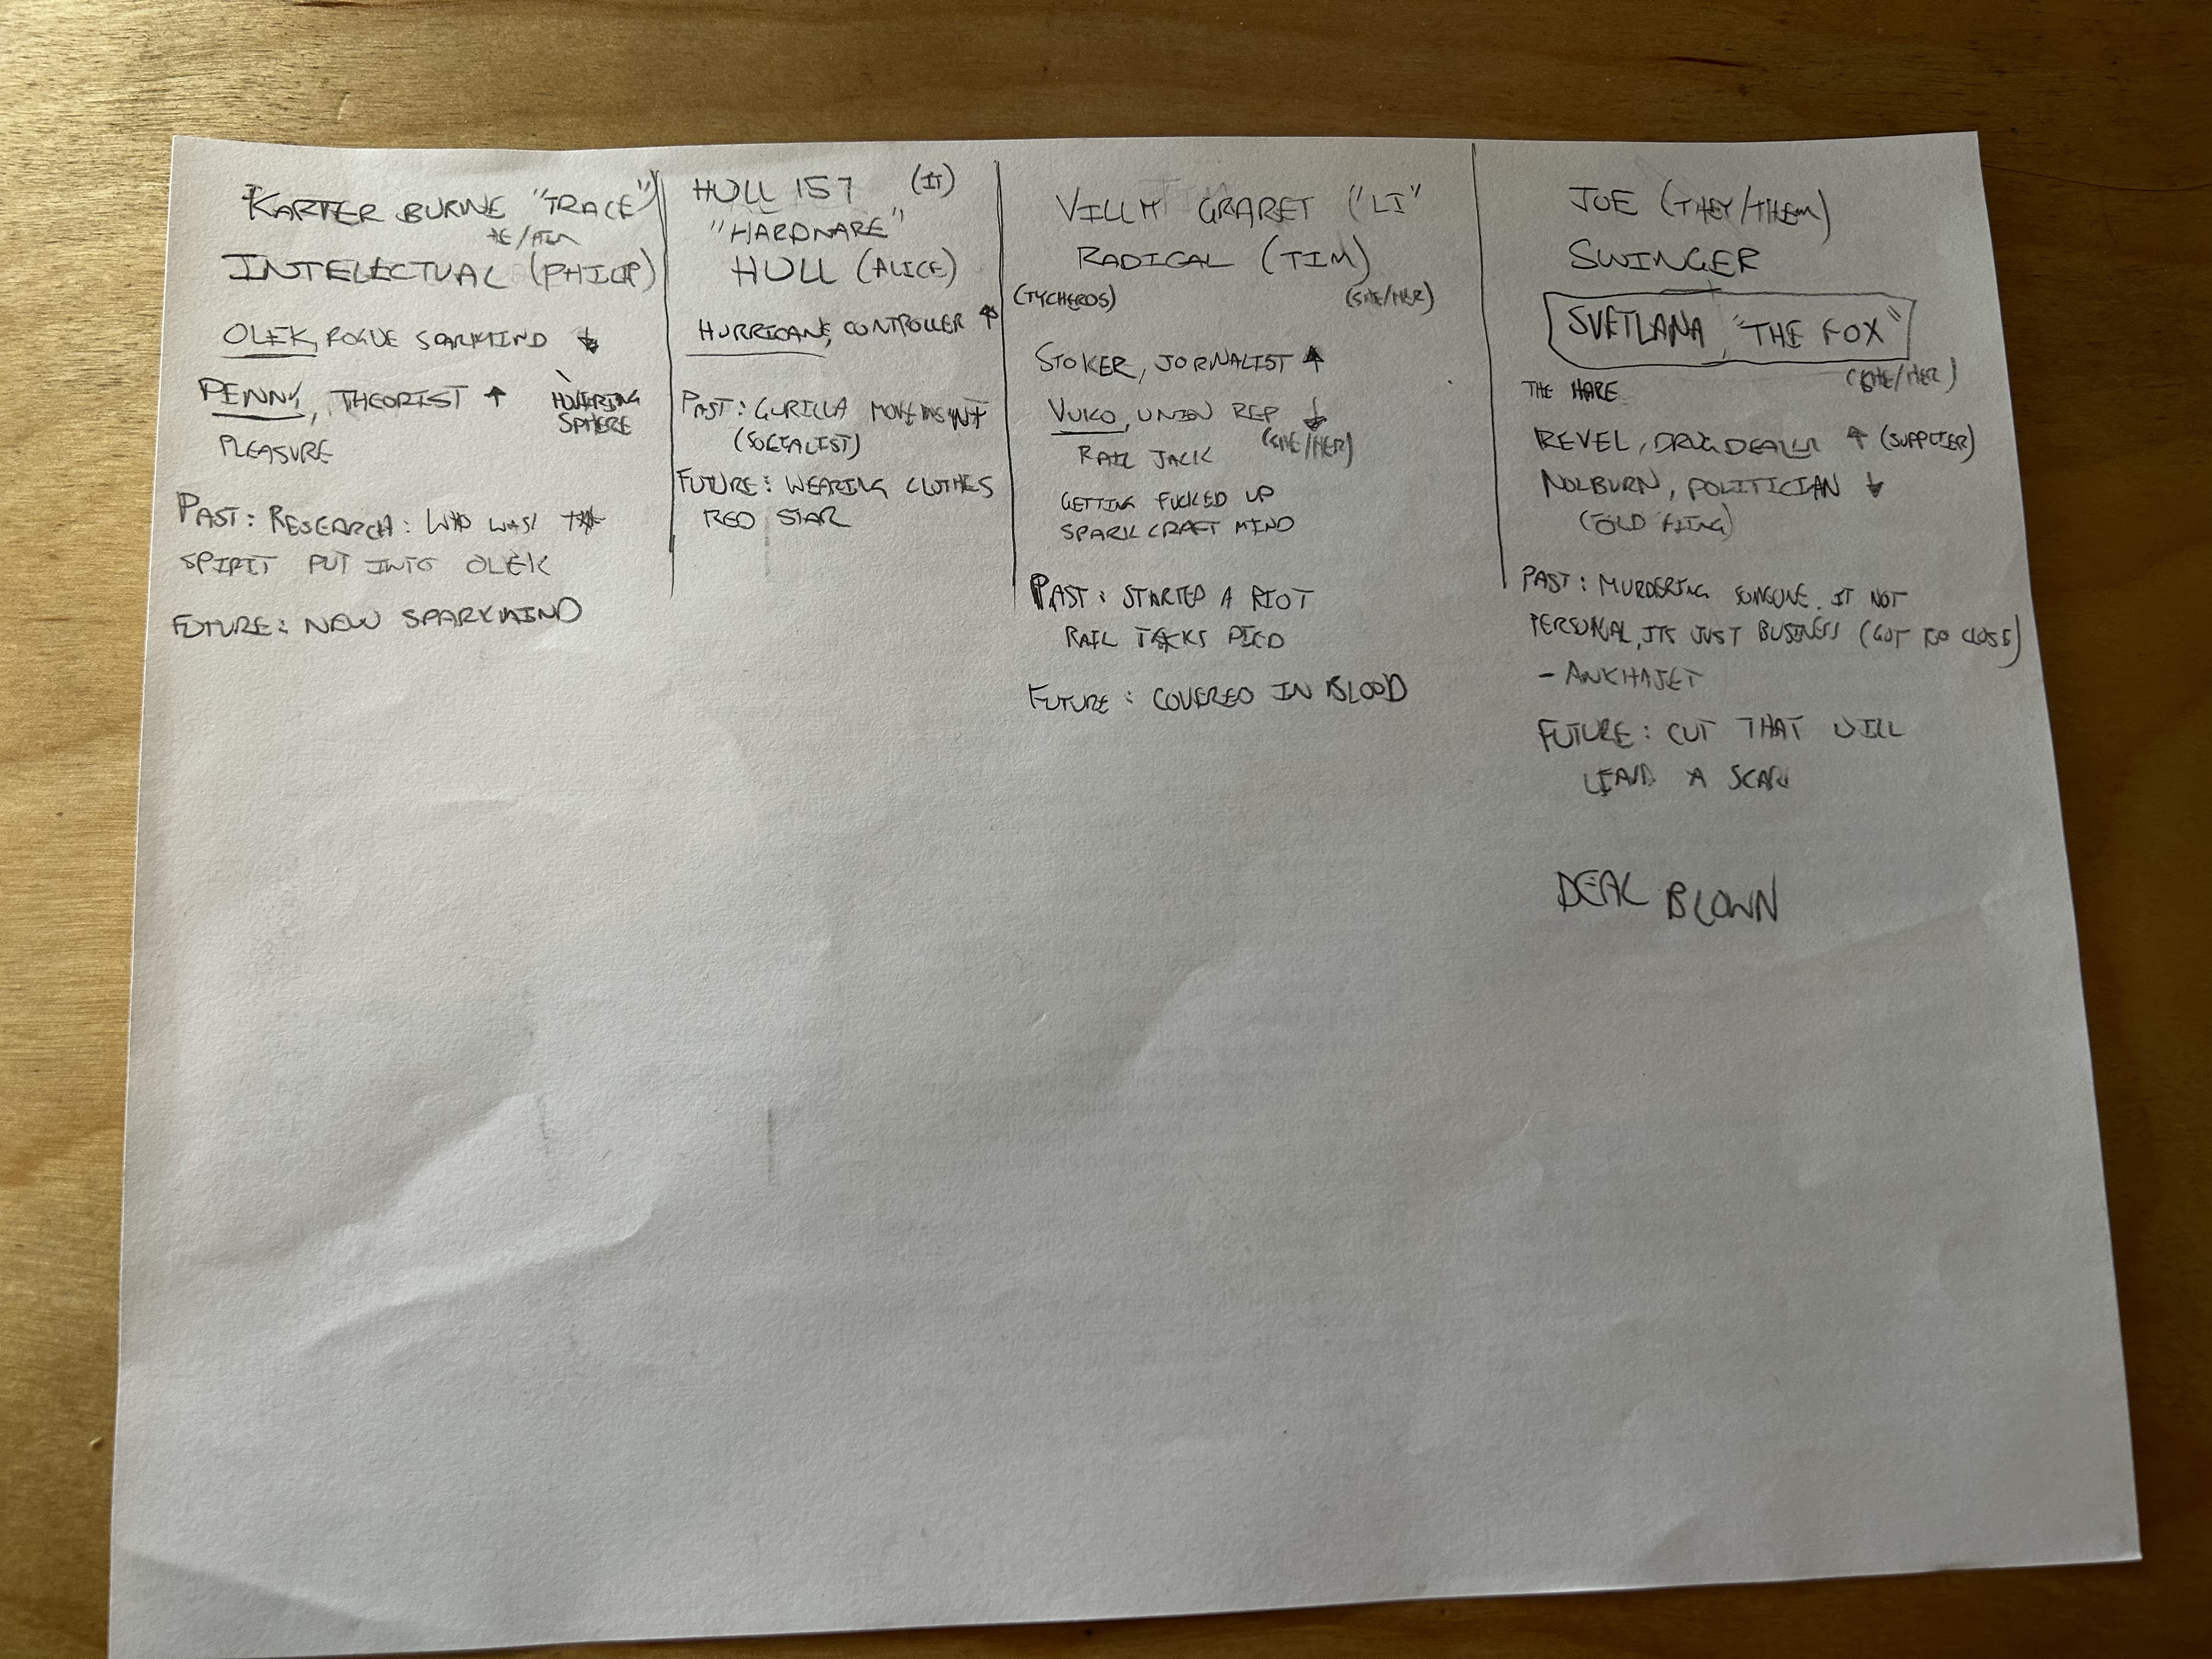 KARTER BURNE "TRACE"
HE/HIM
INTELECTUAL (PHILIP)
OLEK, ROGUE SPARKMIND ↓
PENNY, THEORIST ↑
HOVERING
SPHERE
PLEASURE
PAST: RESEARCH: WHO WAS THE
SPIRIT PUT INTO OLEK
FUTURE: NEW SPARKMIND
HULL 157 (IT)
"HARDWARE"
HULL (ALICE)
HURRICANE, CONTROLLER ↑
PAST: GURILLA MOVEMENT
(SOCIALIST)
FUTURE: WEARING CLOTHES
RED STAR
VILLM GRARET ("LI"
RADICAL (TIM)
(TYCHEROS) (SHE/HER)
STOKER, JORNALIST ↑
VUKO, UNION REP ↓
(SHE/HER)
RAIL JACK
GETTING FUCKED UP
SPARK CRAFT MIND
PAST: STARTED A RIOT
RAIL TACKS PICD
FUTURE: COVERED IN BLOOD
JOE (THEY/THEM)
SWINGER
SVETLANA, "THE FOX"
(SHE/HER)
THE HARE
REVEL, DRUG DEALER ↑ (SUPPLIER)
NOLBURN, POLITICIAN ↓
(OLD FLING)
PAST: MURDERING SOMEONE. IT NOT
PERSONAL, ITS JUST BUSINESS (GOT TOO CLOSE)
- ANKHAJET
FUTURE: CUT THAT WILL
LEAVE A SCAR
DEAL BLOWN